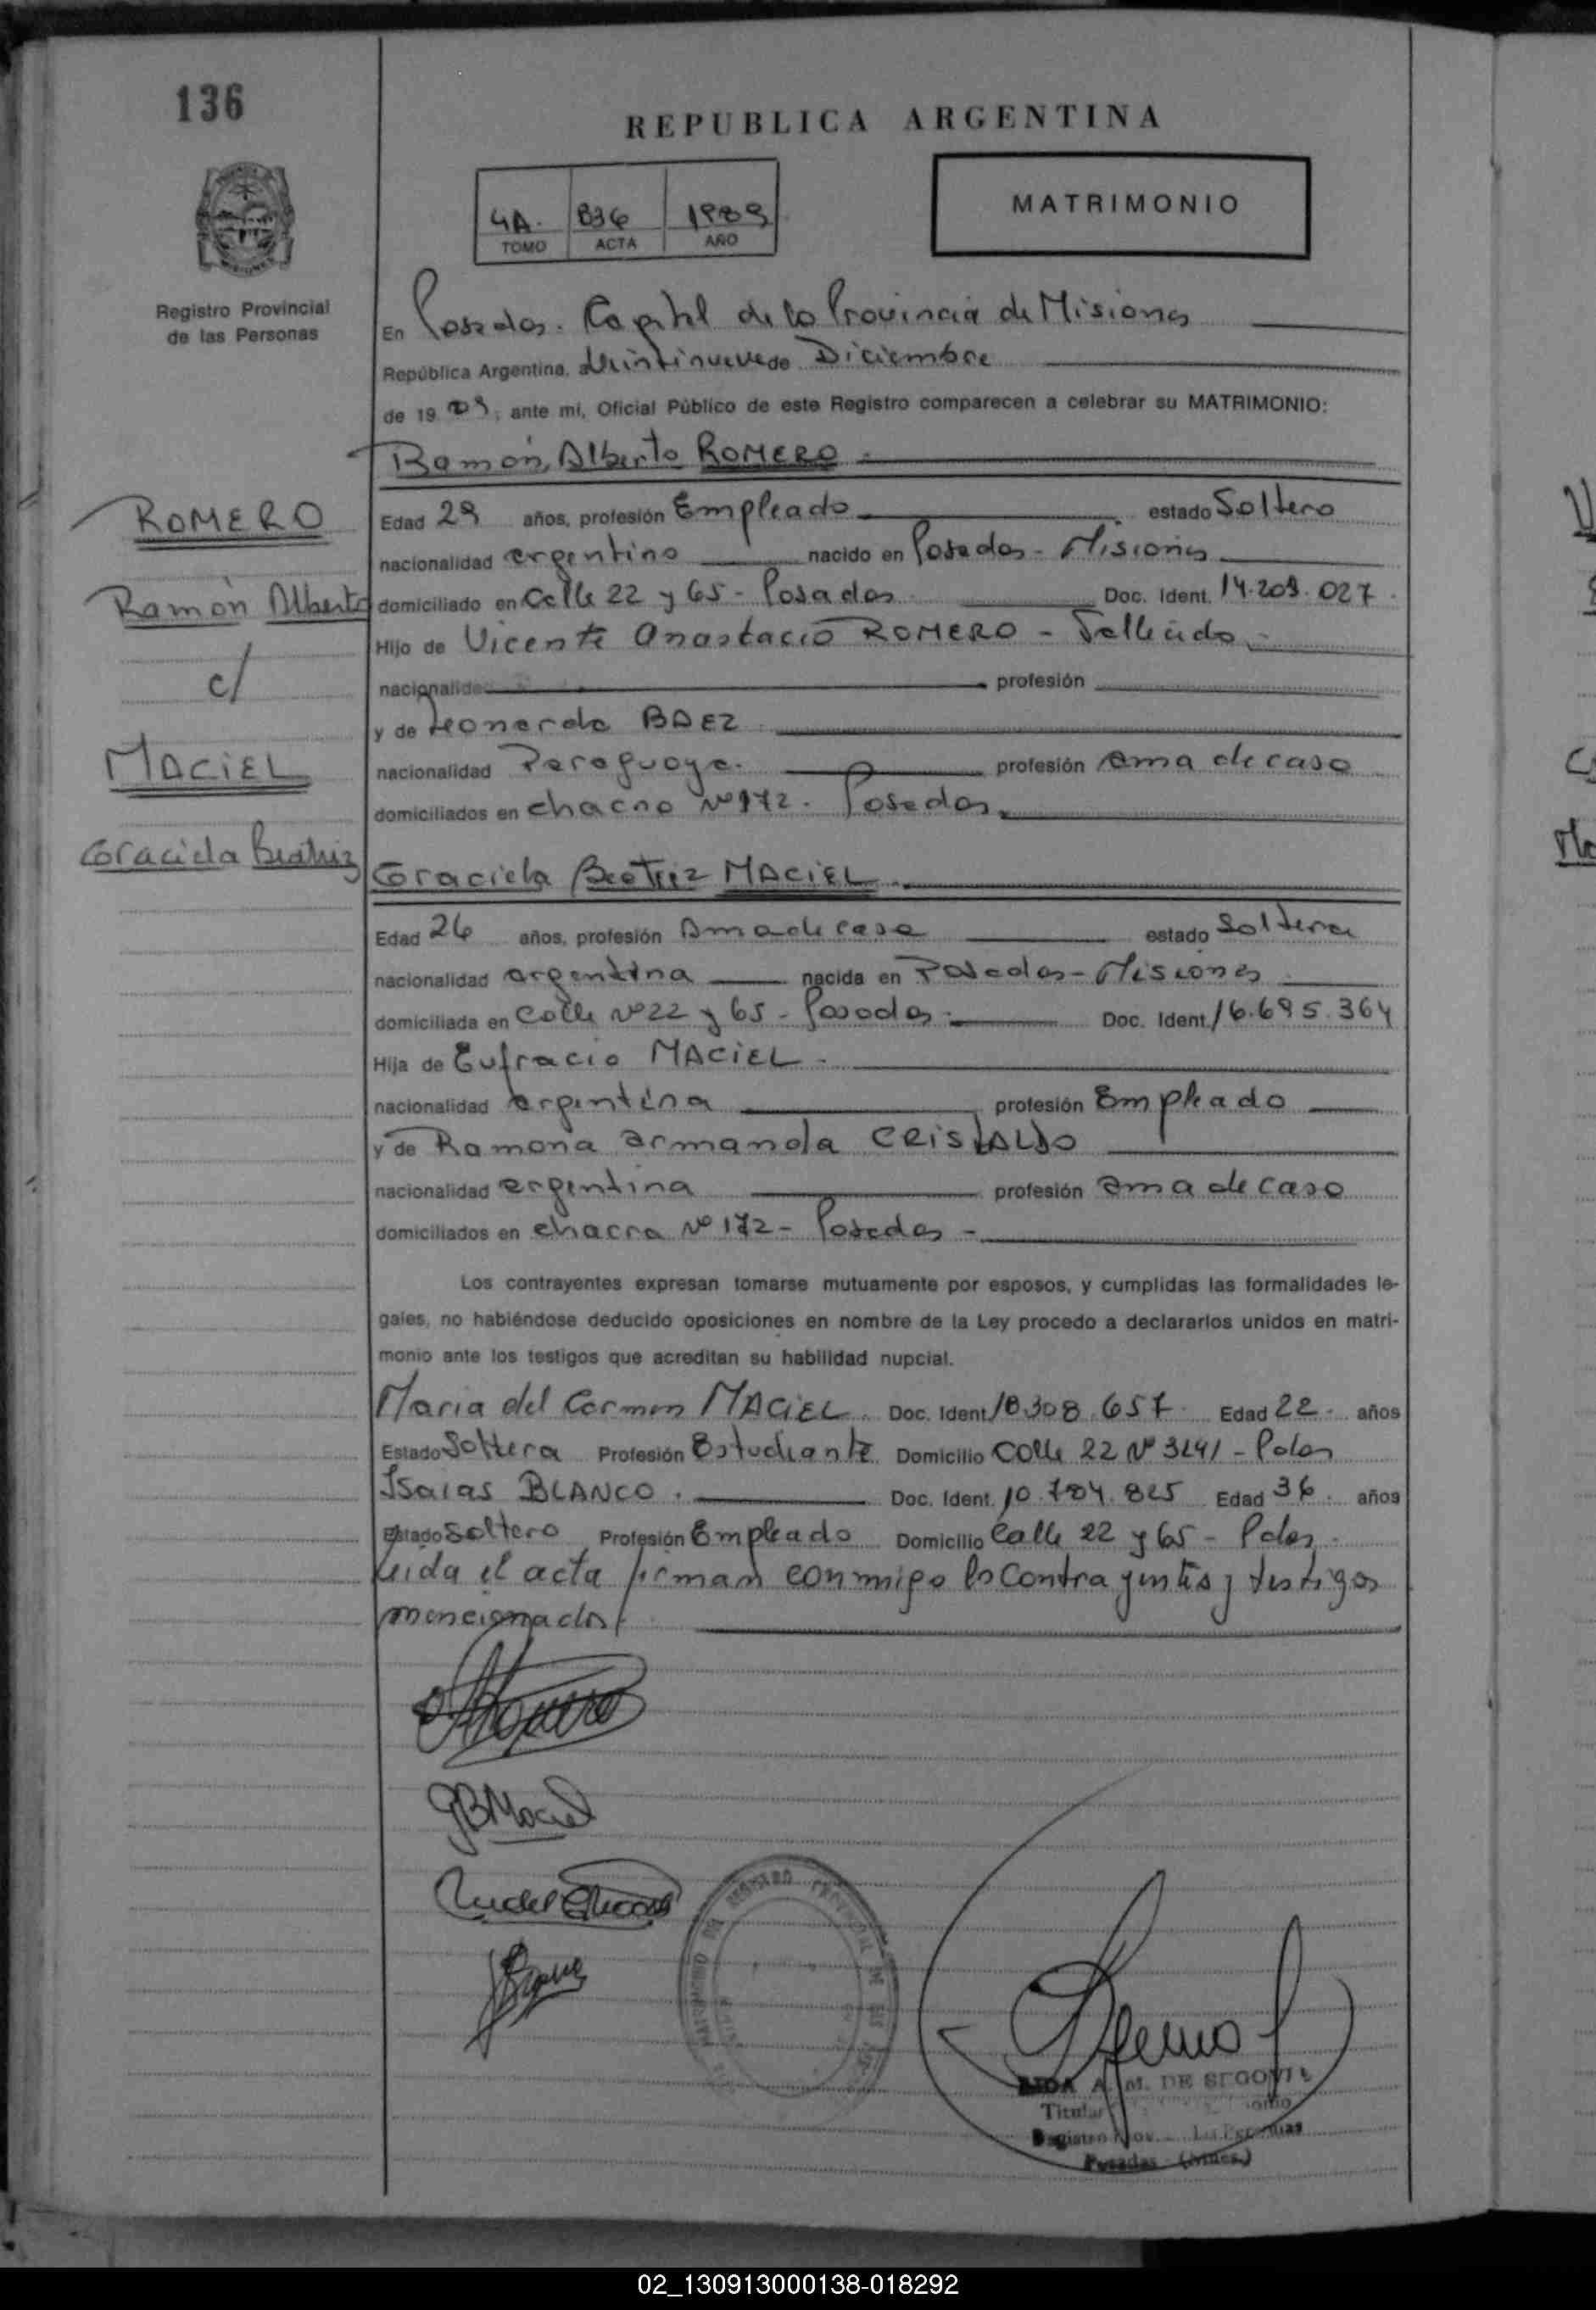 136
REPUBLICA ARGENTINA
4A. 836 1989
TOMO ACTA AÑO
MATRIMONIO
Registro Provincial
de las Personas
En Posadas. Capital de la Provincia de Misiones
República Argentina, a Veintinueve de Diciembre
de 1989, ante mí, Oficial Público de este Registro comparecen a celebrar su MATRIMONIO:
Ramón Alberto ROMERO
ROMERO
Ramón Alberto
c/
MACIEL
Graciela Beatriz
Edad 29 años, profesión Empleado estado Soltero
nacionalidad argentino nacido en Posadas - Misiones
domiciliado en Calle 22 y 65 - Posadas Doc. Ident. 14.209.027
Hijo de Vicente Anastacio ROMERO - Fallecido
nacionalidad profesión
y de Leonarda BAEZ
nacionalidad Paraguaya. profesión ama de casa
domiciliados en chacra Nº 172. Posadas.
Graciela Beatriz MACIEL
Edad 26 años, profesión Ama de casa estado Soltera
nacionalidad argentina nacida en Posadas - Misiones
domiciliada en Calle Nº 22 y 65 - Posadas Doc. Ident. 16.695.364
Hija de Eufracio MACIEL
nacionalidad argentina profesión Empleado
y de Ramona armanda CRISTALDO
nacionalidad argentina profesión ama de casa
domiciliados en chacra Nº 172 - Posadas -
Los contrayentes expresan tomarse mutuamente por esposos, y cumplidas las formalidades le-
gales, no habiéndose deducido oposiciones en nombre de la Ley procedo a declararlos unidos en matri-
monio ante los testigos que acreditan su habilidad nupcial.
Maria del Carmen MACIEL Doc. Ident. 18.308.657 Edad 22 años
Estado Soltera Profesión Estudiante Domicilio Calle 22 Nº 3241 - Pdas
Isaias BLANCO. Doc. Ident. 10.784.825 Edad 36 años
Estado Soltero Profesión Empleado Domicilio Calle 22 y 65 - Pdas
Leida el acta firman conmigo los contrayentes y testigos
mencionados
GBMaciel
A. M. DE SEGOVIA
Titular
Posadas (Mnes.)
02_130913000138-018292